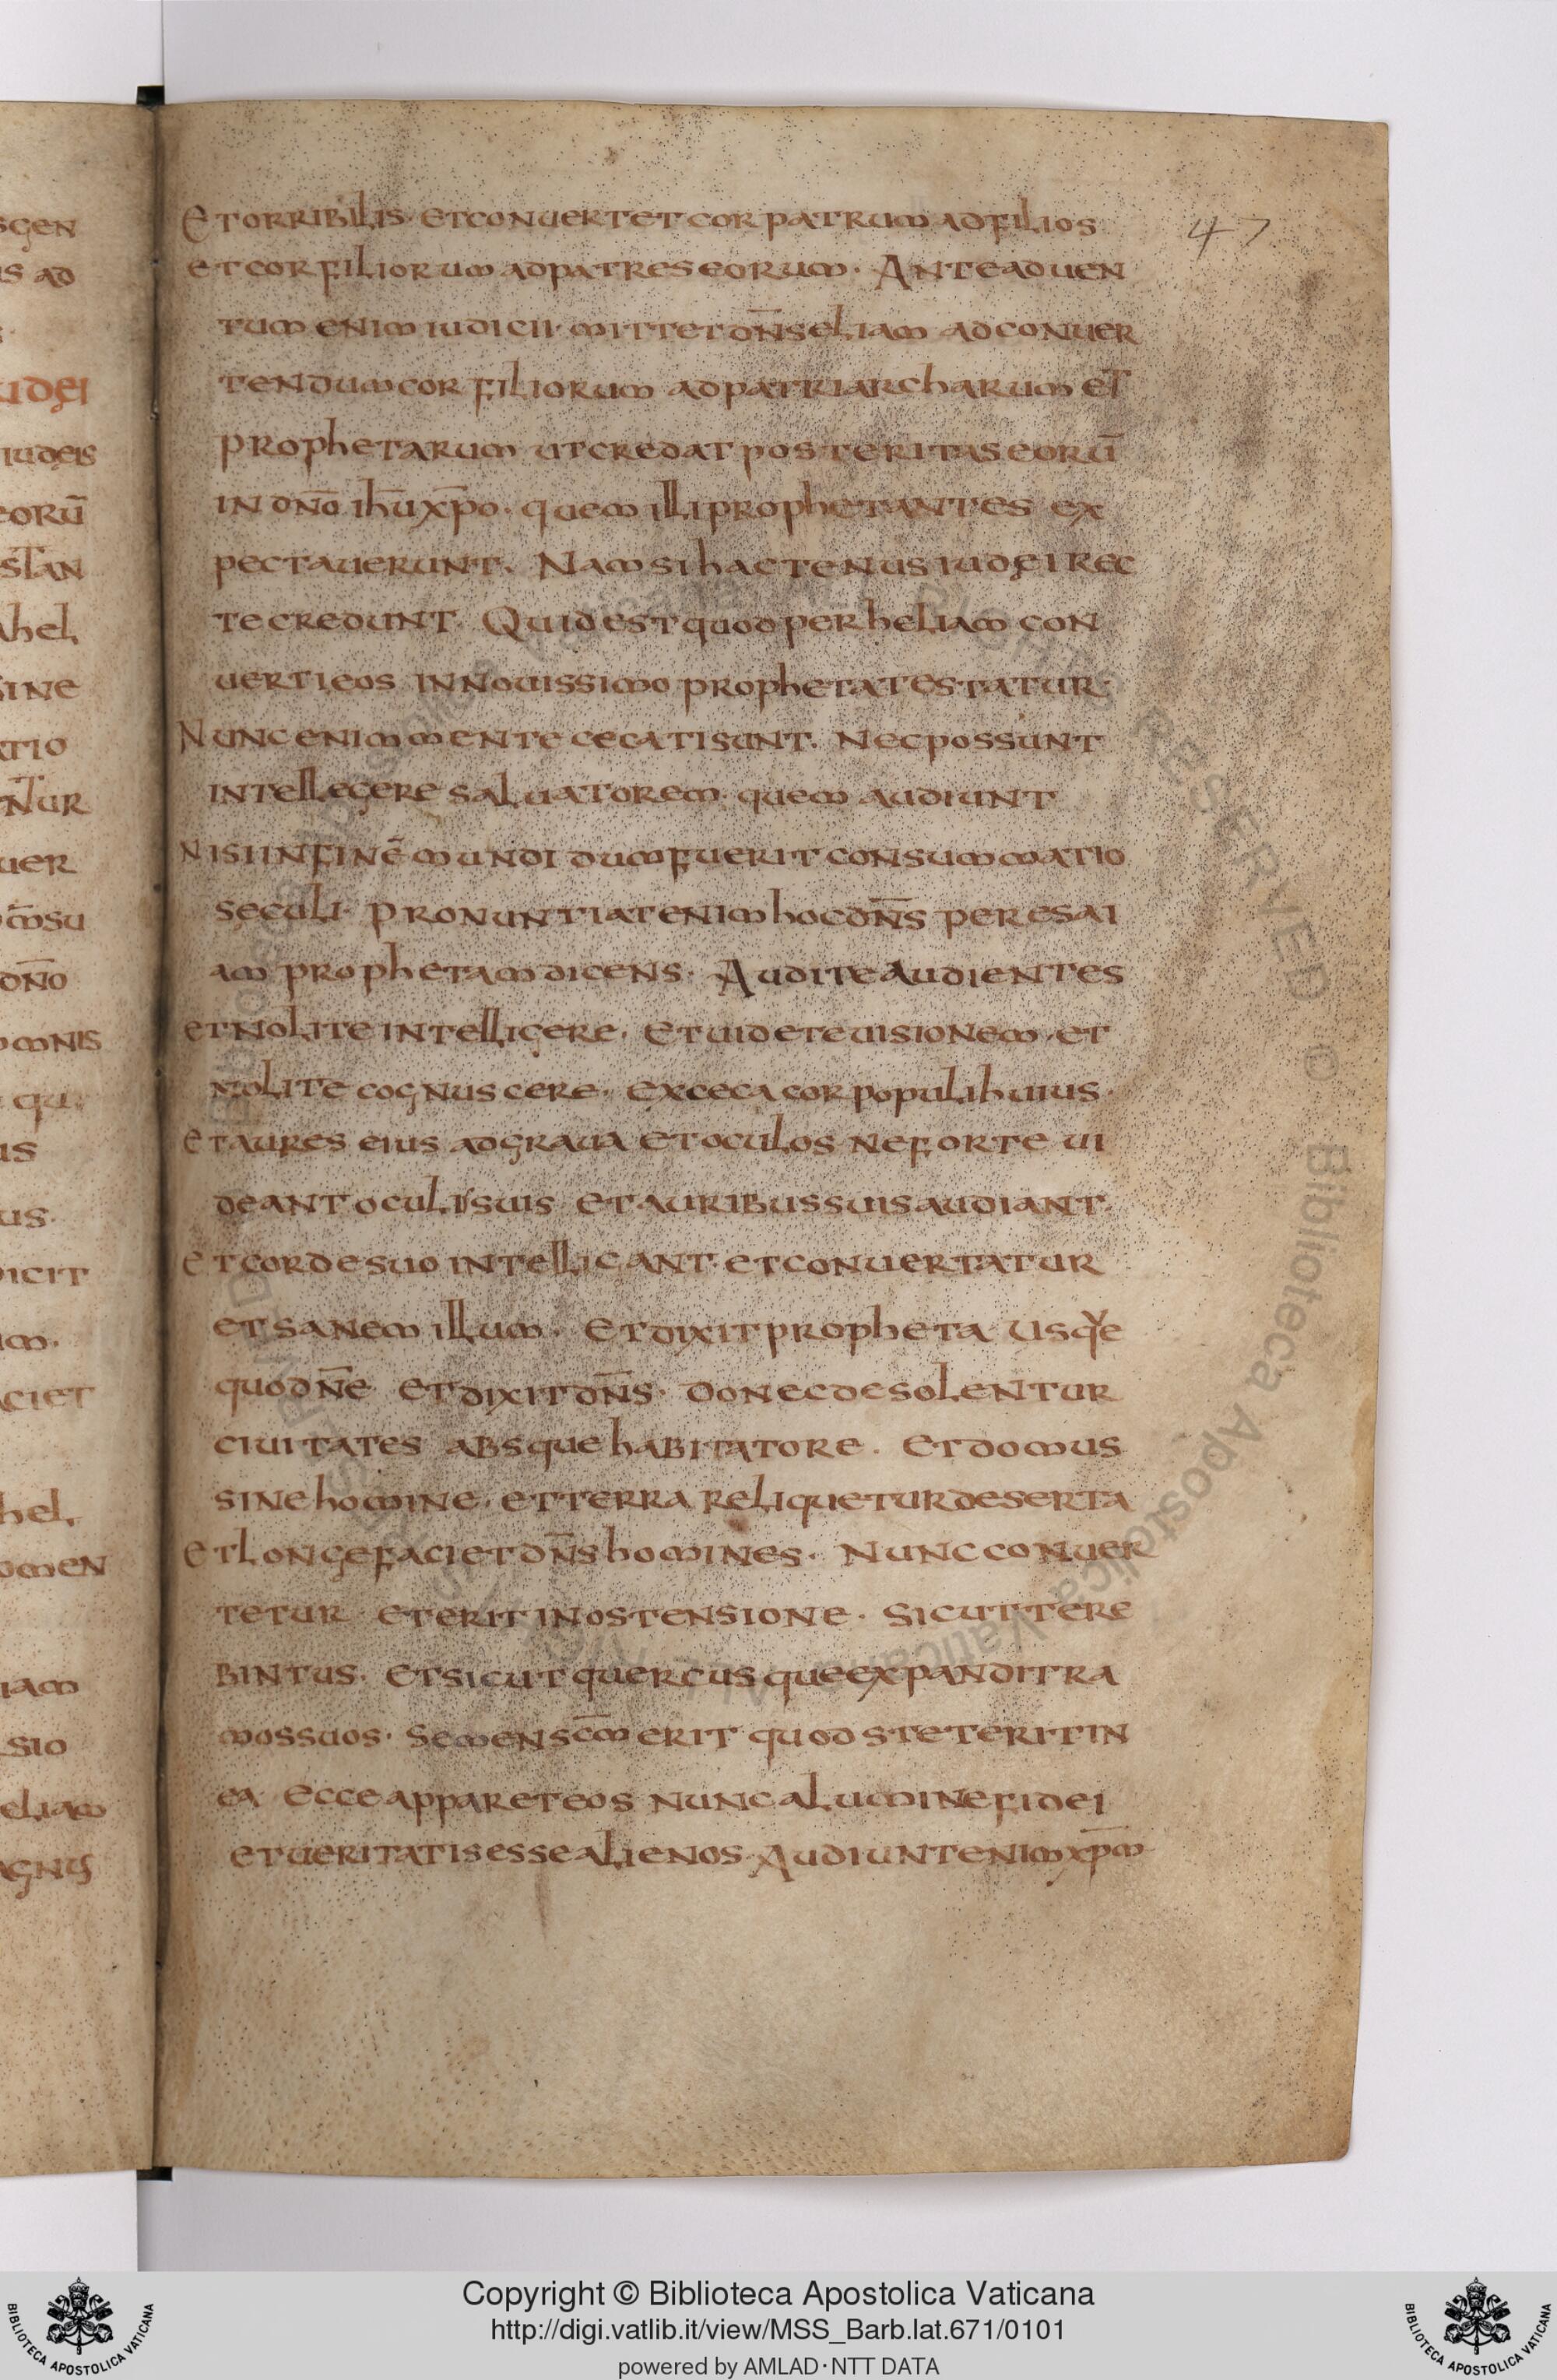 47
Et orribilis · et conuertet cor patrum ad filios
et cor filiorum ad patres eorum · Ante aduen
tum enim iudicii · mittet dn̄s eliam ad conuer
tendum cor filiorum ad patriarcharum et
prophetarum ut credat posteritas eorū
in dn̄o ih̄u xp̄o · quem illi prophetantes ex
pectauerunt · Nam si hactenus iudęi rec
te credunt · Quid est quod per heliam con
uerti eos in nouissimo propheta testatur ·
Nunc enim mente cecati sunt · Nec possunt
intellegere saluatorem · quem audiunt
Nisi in finē mundi dum fuerit consummatio
seculi · Pronuntiat enim hoc dn̄s per esai
am prophetam dicens · Audite audientes
et nolite intelligere · Et uidete uisionem · et
nolite cognuscere · exceca cor populi huius ·
et aures eius adgraua et oculos ne forte ui
deant oculis suis et auribus suis audiant ·
et corde suo intelligant · et conuertatur
et sanem illum · Et dixit propheta Usq'e
quo dn̄e et dixit dn̄s · Donec desolentur
ciuitates absque habitatore · Et domus
sine homine · et terra reliquetur deserta
et longe faciet dn̄s homines · Nunc conuer
tetur et erit in ostensione · Sicut tere
bintus · Et sicut quercus que expandit ra
mos suos · Semen sc̄m erit quod steterit in
ea Ecce apparet eos nunc a lumine fidei
et ueritatis esse alienos · Audiunt enim xp̄m
Copyright © Biblioteca Apostolica Vaticana
http://digi.vatlib.it/view/MSS_Barb.lat.671/0101
powered by AMLAD·NTT DATA